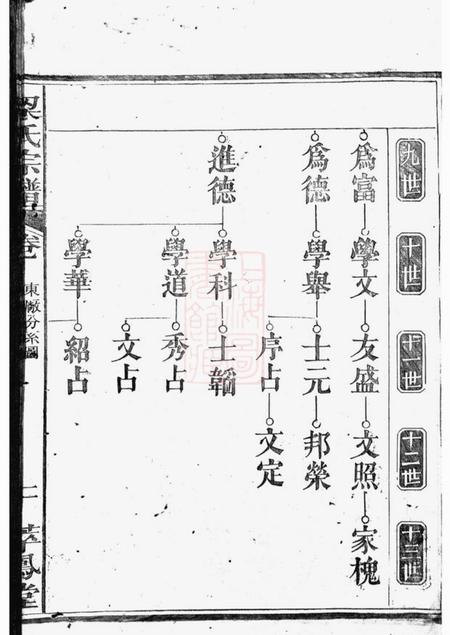 九世
十世
十一世
十二世
十三世
為富
學文
友盛
文照
家槐
為德
學舉
士元
邦榮
序占
文定
進德
學科
士韜
學道
秀占
文占
學華
紹占
氏宗譜
卷
東
分系圖
鳳堂